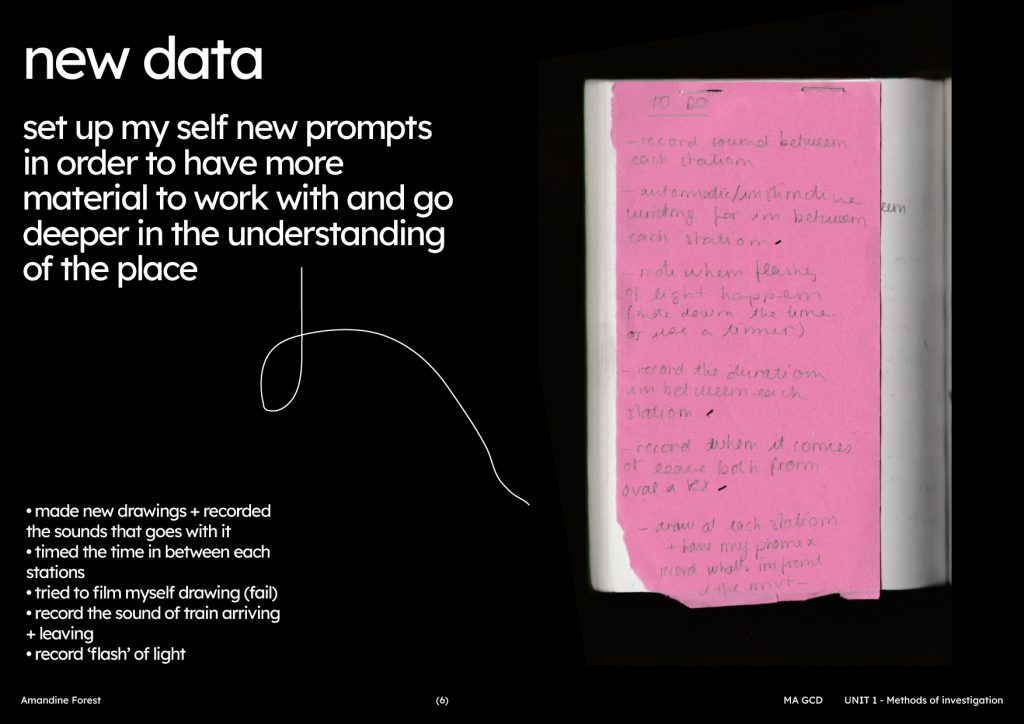 new data
set up my self new prompts
in order to have more
material to work with and go
deeper in the understanding
of the place
• made new drawings + recorded
the sounds that goes with it
• timed the time in between each
stations
• tried to film myself drawing (fail)
• record the sound of train arriving
+ leaving
• record ‘flash’ of light
TO DO
- record sound between
each station
- automatic/instinctive
writing for in between
each station
- note when flashes
of light happen
(note down the time
or use a timer)
- record the duration
in between each
station
- record when it comes
leave both from
oval
- draw at each station
+ have my phone
record what's in front
Amandine Forest
(6)
MA GCD
UNIT 1 - Methods of investigation